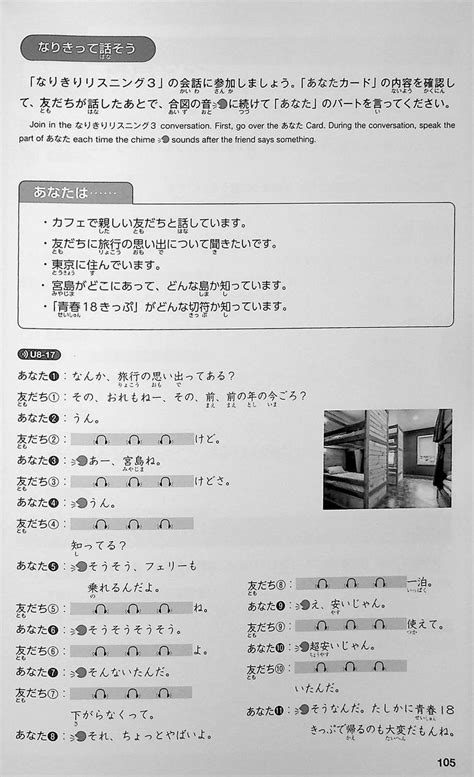 なりきって話そう
「なりきりリスニング3」の会話に参加しましょう。「あなたカード」の内容を確認し
て、友だちが話したあとで、合図の音に続けて「あなた」のパートを言ってください。
Join in the なりきりリスニング3 conversation. First, go over the あなた Card. During the conversation, speak the
part of あなた each time the chime sounds after the friend says something.
あなたは……
・カフェで親しい友だちと話しています。
・友だちに旅行の思い出について聞きたいです。
・東京に住んでいます。
・宮島がどこにあって、どんな島か知っています。
・「青春18きっぷ」がどんな切符か知っています。
U8-17
あなた❶：なんか、旅行の思い出ってある？
友だち①：その、おれもねー、その、前、前の年の今ごろ？
あなた❷：うん。
友だち②：けど。
あなた❸：あー、宮島ね。
友だち③：けどさ。
あなた❹：うん。
友だち④：
知ってる？
あなた❺：そうそう、フェリーも
乗れるんだよ。
友だち⑤：ね。
あなた❻：そうそうそうそう。
友だち⑥：よ。
あなた❼：そんないたんだ。
友だち⑦：
下がらなくって。
あなた❽：それ、ちょっとやばいよ。
友だち⑧：一泊。
あなた❾：え、安いじゃん。
友だち⑨：使えて。
あなた❿：超安いじゃん。
友だち⑩：
いたんだ。
あなた⓫：そうなんだ。たしかに青春18
きっぷで帰るのも大変だもんね。
105